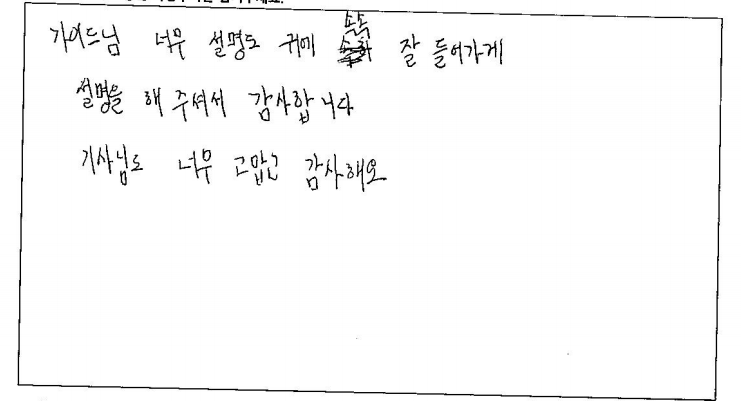 가이드님 너무 설명도 귀에 쏙쏙 잘 들어가게
설명을 해 주셔서 감사합니다
기사님도 너무 고맙고 감사해요